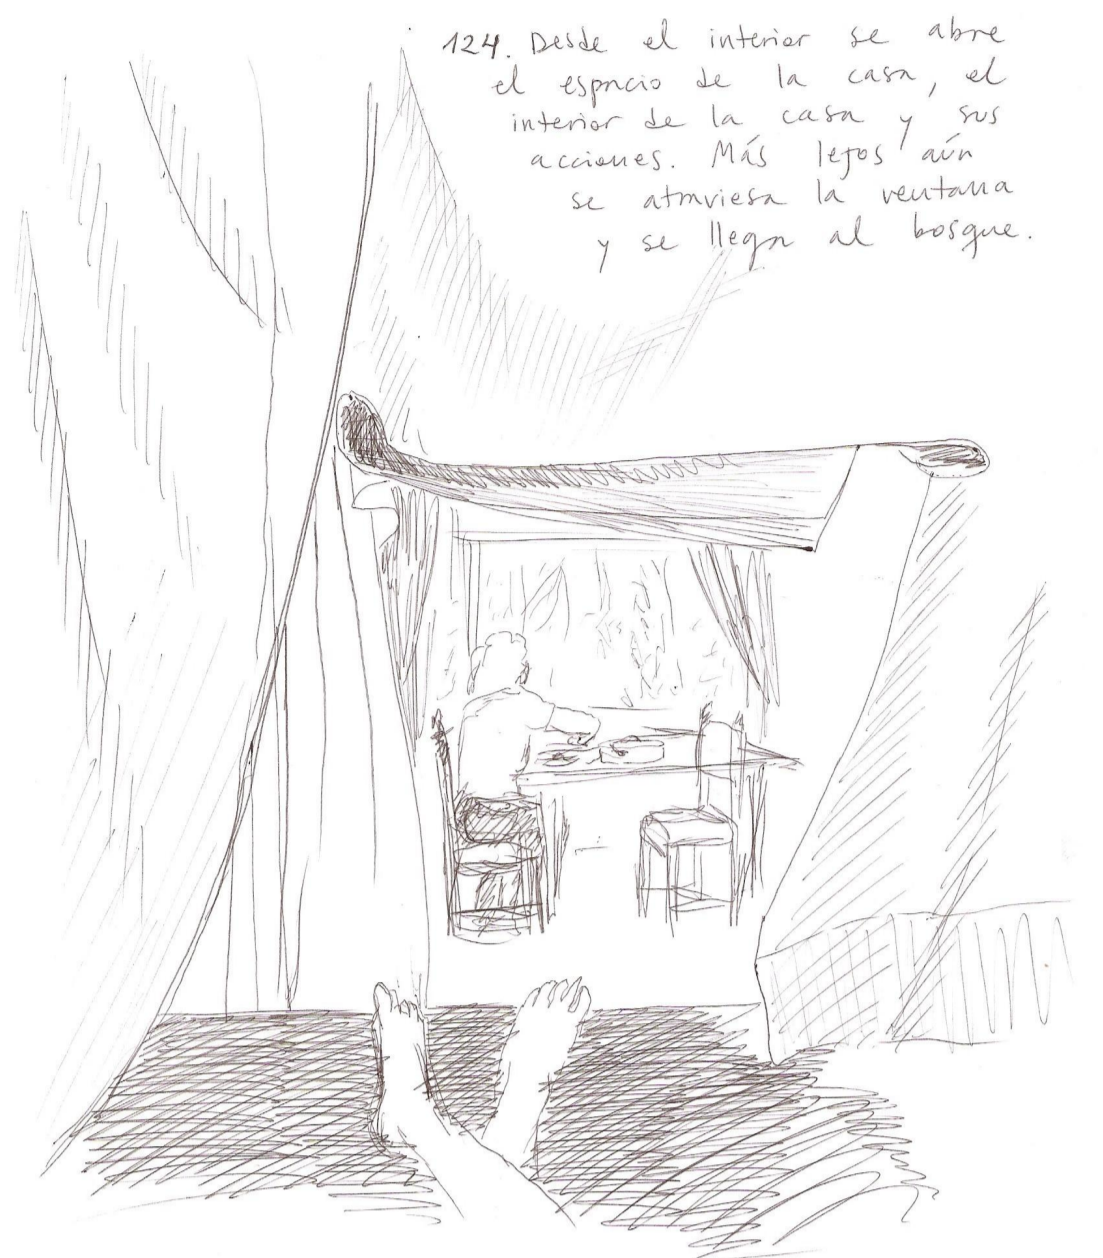 124. Desde el interior se abre
el espacio de la casa, el
interior de la casa y sus
acciones. Más lejos aún
se atraviesa la ventana
y se llega al bosque.